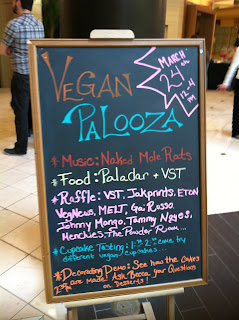 VEGAN
PALOOZA
MARCH
24th
12-4
PM
* Music: Naked Mole Rats
* Food: Paladar + VST
* Raffle: VST, Inkprints, ETON
VegNews, MELT, Gai Russo
Johnny Mango, Tammy
Menchies, The Powder Room...
* Cupcake Tasting: Come try
different vegan cupcakes...
* Decorating Demo: See how the cakes
are made! Ask Becca your Questions
on Desserts!